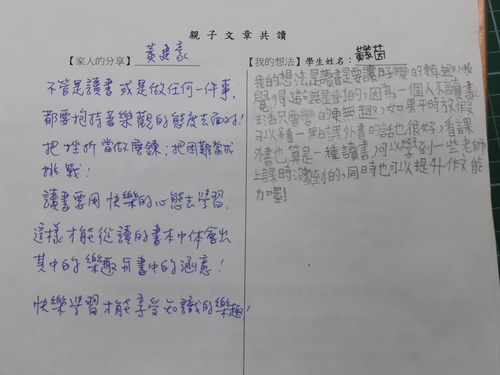 親子文章共讀
【家人的分享】黃建豪
不管是讀書或是做任何一件事,
都要抱持著樂觀的態度去面對!
把挫折當做磨鍊,把困難當成
挑戰!
讀書要用快樂的心態去學習.
這樣才能從讀的書本中体會出
其中的樂趣和書中的涵意!
快樂學習才能享受知識的樂趣!
【我的想法】學生姓名:黃茵
我的想法是讀書是要讓
覺得這話是對的,因為一個人不讀書
生活只會變的無趣,如果平時放假
可以多看一點課外書的話也很好,看課
外書也算是一種讀書,可以學到一些老師
上課時沒教到的,同時也可以提升作文能
力喔!